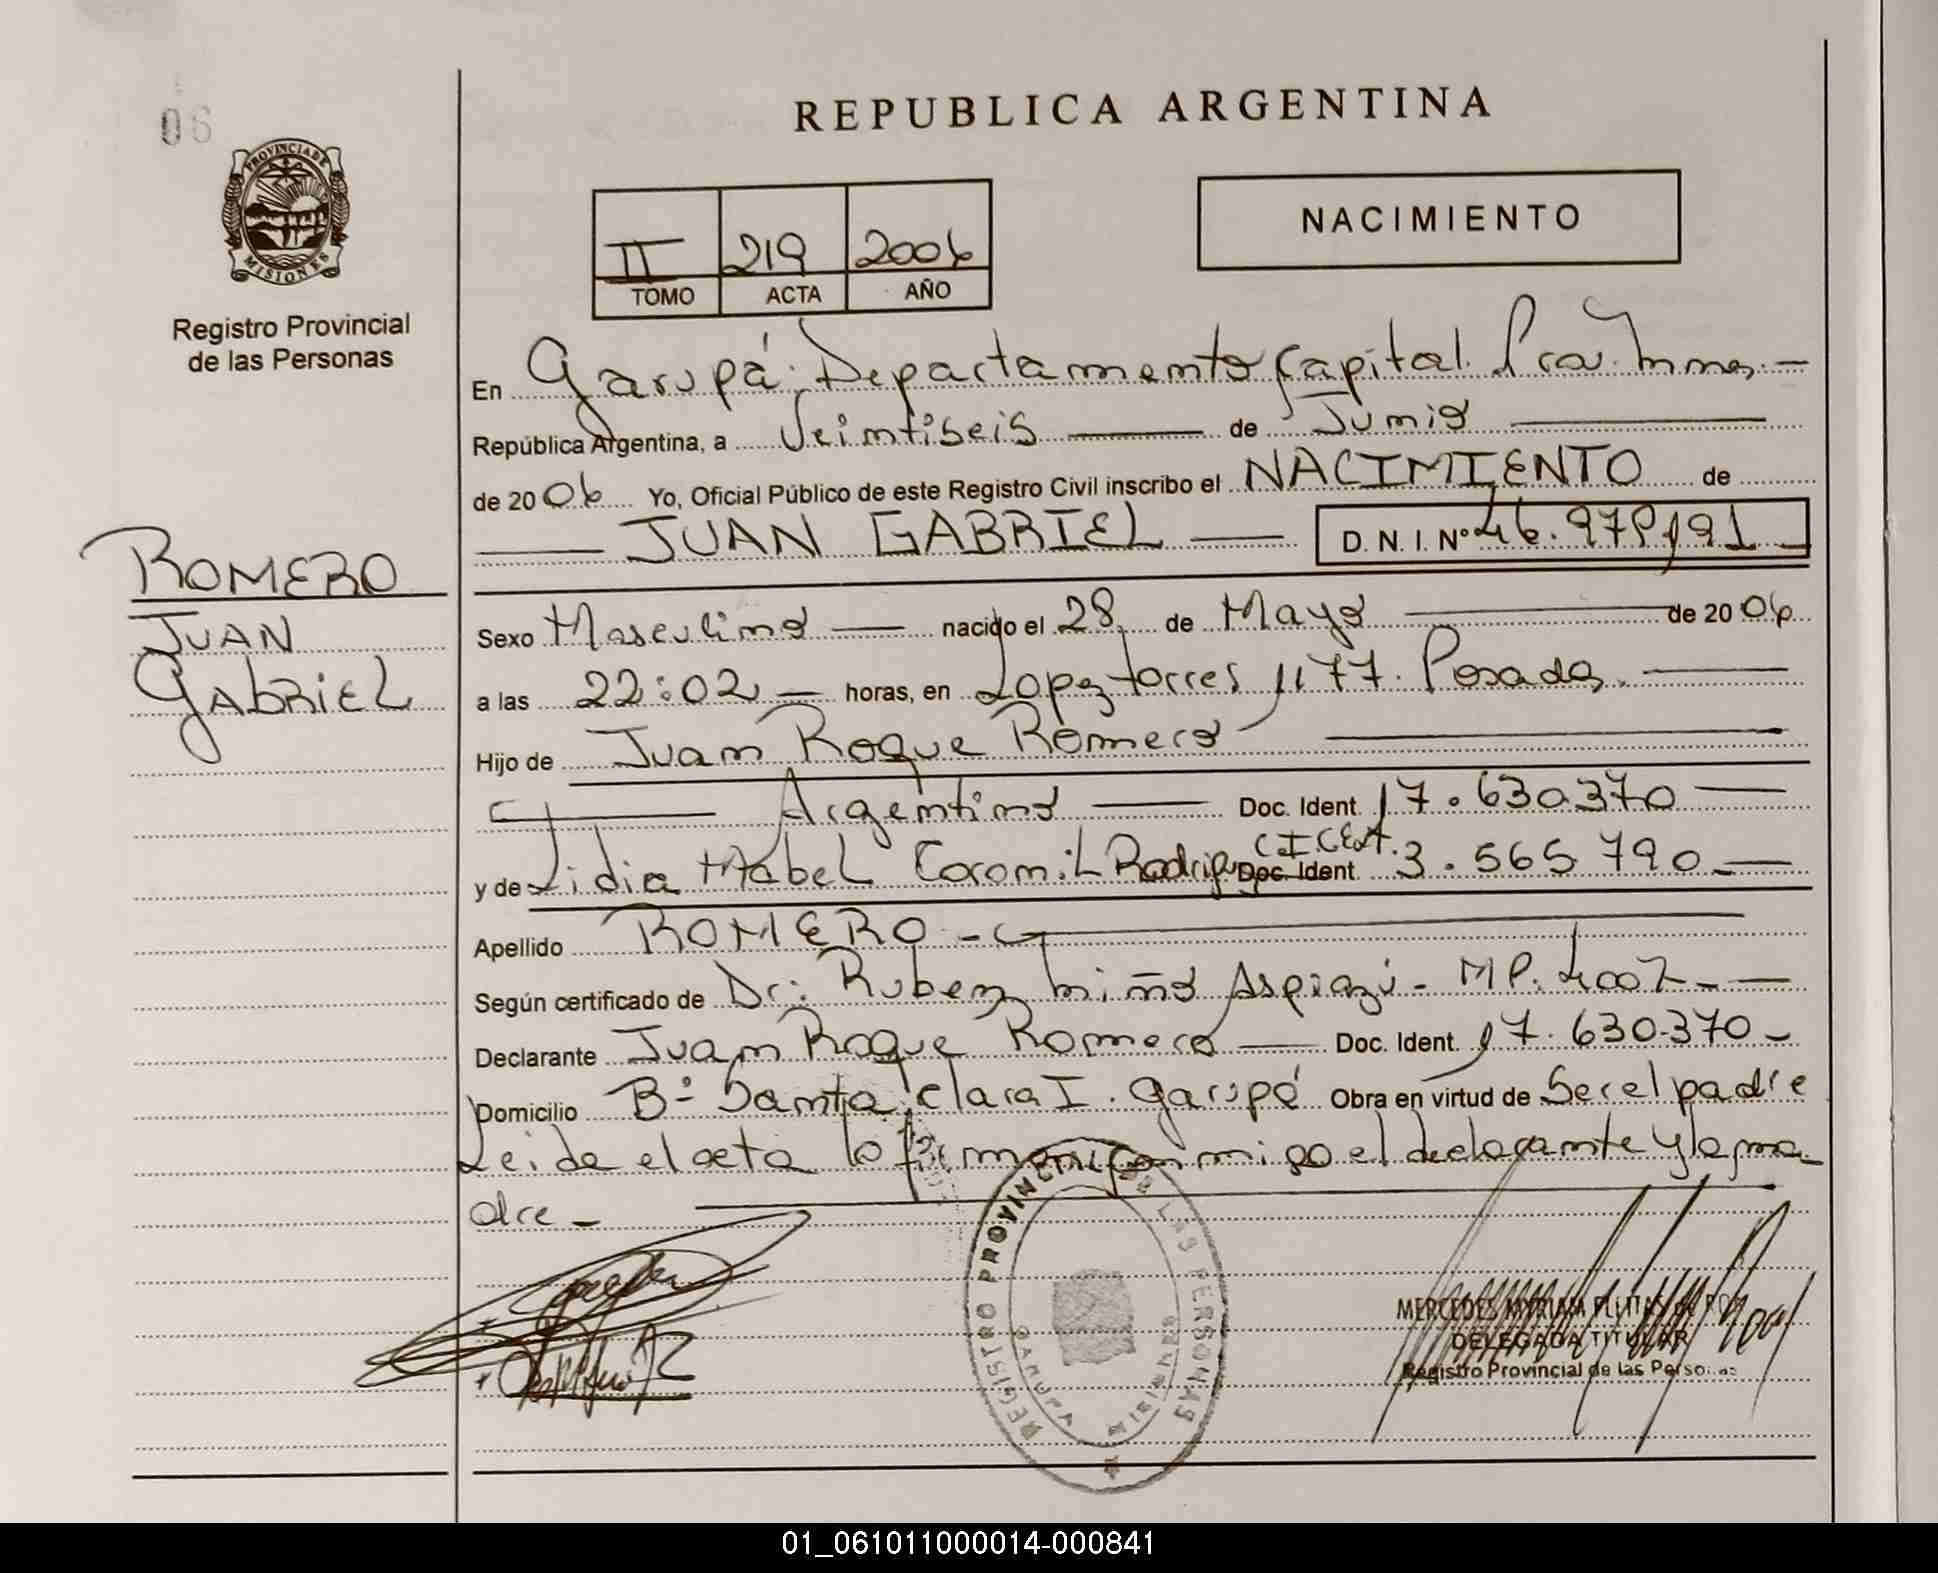 06
PROVINCIA DE
MISIONES
Registro Provincial
de las Personas
REPUBLICA ARGENTINA
NACIMIENTO
II 219 2006
TOMO ACTA AÑO
En Garupá Departamento Capital Prov. Mnes.
República Argentina, a Veintiseis de Junio
de 2006 Yo, Oficial Público de este Registro Civil inscribo el NACIMIENTO de
JUAN GABRIEL D.N.I. Nº 46.979.191
ROMERO
JUAN
GABRIEL
Sexo Masculino nacido el 28 de Mayo de 2006
a las 22:02 horas, en Lopez torres 1177. Posadas.
Hijo de Juan Roque Romero
Argentino Doc. Ident. 17.630370
y de Lidia Mabel Coronil Rodriguez C.I. Doc. Ident. 3.565790
Apellido ROMERO
Según certificado de Dr. Ruben Miño Aspiazú - MP. 4007
Declarante Juan Roque Romero Doc. Ident. 17.630.370
Domicilio Bº Santa Clara I. Garupá Obra en virtud de Ser el padre
Leida el acta la firman conmigo el declarante y la ma
dre
REGISTRO PROVINCIAL DE LAS PERSONAS
GARUPA MISIONES
MERCEDES MYRIAM
DELEGADA TITULAR
Registro Provincial de las Personas
01_061011000014-000841